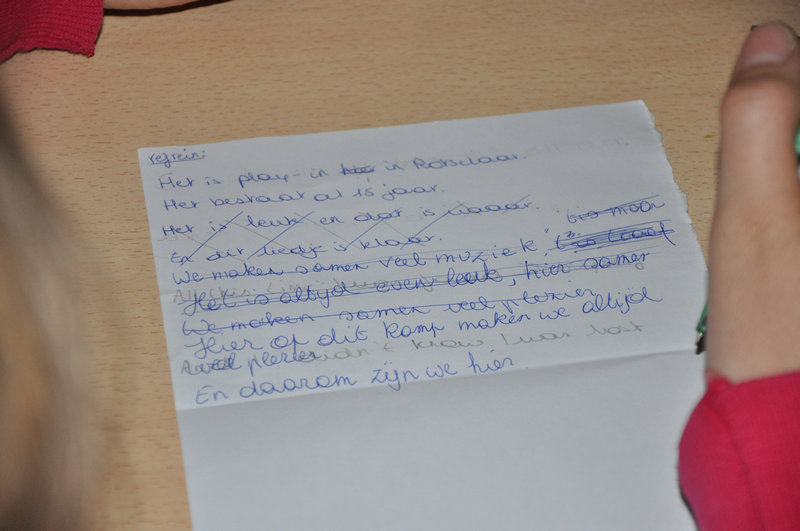 refrein:
Het is play-in in Rotselaar.
Het bestaat al 15 jaar.
Het is leuk en dat is waaar.
En dit liedje is klaar.
We maken samen veel muziek,
Het is altijd even leuk, hier samen
We maken samen veel plezier
Hier op dit kamp maken we altijd
veel plezier know I was lost
En daarom zijn we hier.